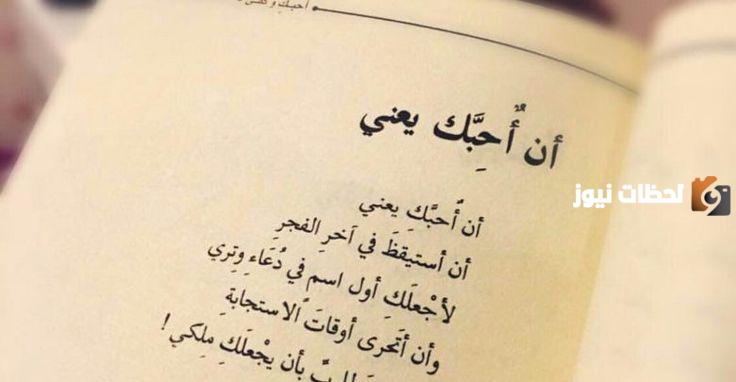 أحبك وكفى
أن أُحِبَّك يعني
أن أُحبَّكِ يعني
أن أستيقظَ في آخرِ الفجرِ
لأجْعلَكِ أول اسم في دُعَاءِ وِترِي
وأن أتَحرى أوقاتَ الاستجابةِ
بأن يجْعلَكِ مِلكِي!
لحظات نيوز